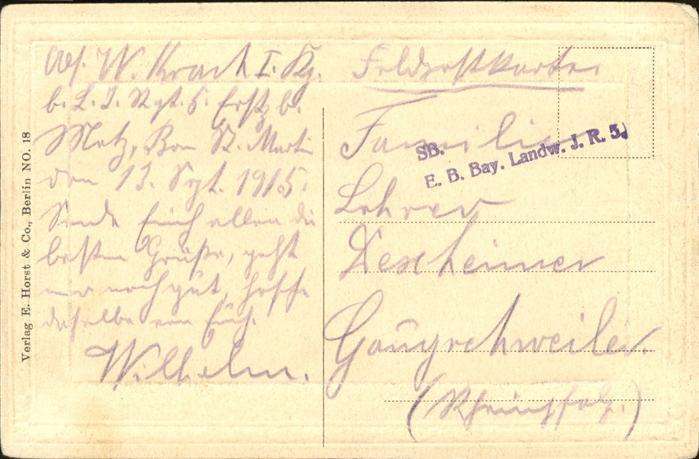 Abs. W. Krach I. Kp.
b. L. J. Rgt. 5. Ersz. b.
Metz, Ban St. Martin
den 13. Sept. 1915.
Sende Euch allen die
besten Grüße, geht
mir noch gut, hoffe
dasselbe von Euch.
Wilhelm.
Feldpostkarte
Familie
Lehrer
Dexheimer
Gaugrehweiler
(Rheinpfalz.)
SB.
E. B. Bay. Landw. J. R. 5.
Verlag E. Horst & Co., Berlin NO. 18